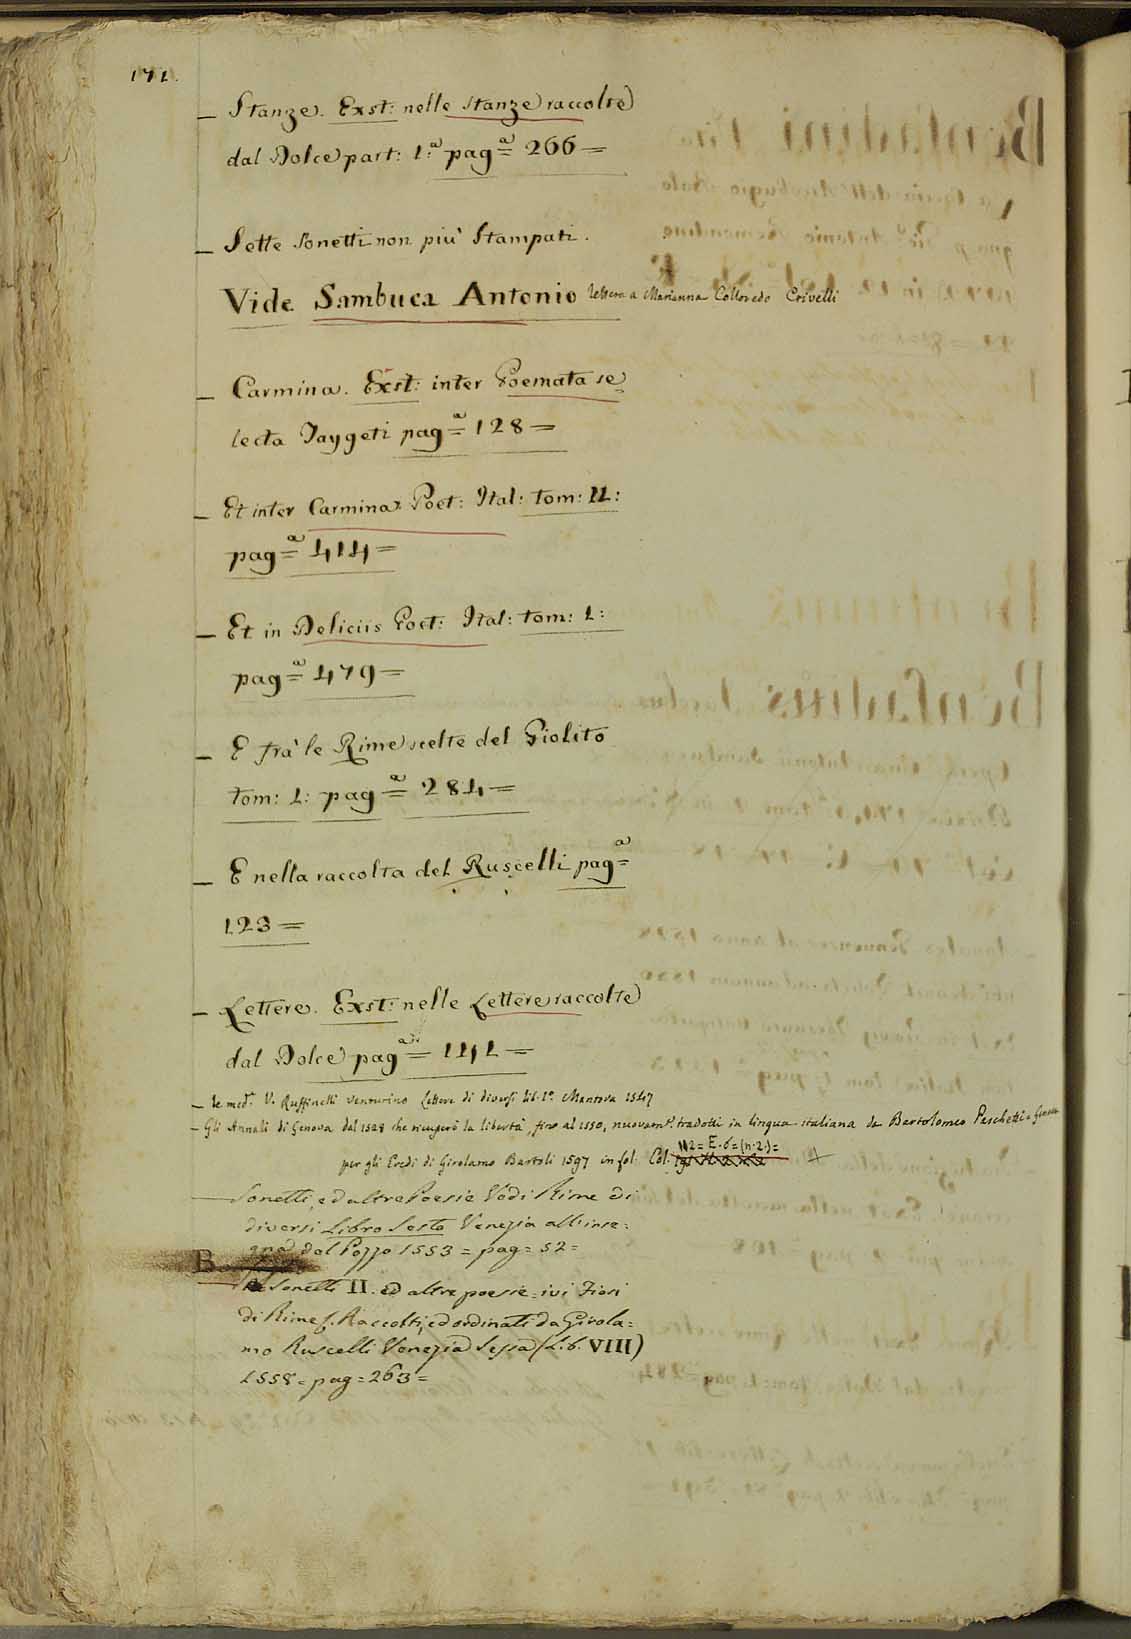 171.
– Stanze. Exst: nelle stanze raccolte
dal Dolce part: 1.ª pagª= 266=
– Sette Sonetti non più Stampati.
Vide Sambuca Antonio lettera a Marianna Colloredo Crivelli
– Carmina. Exst: inter Poemata se=
lecta Taygeti pagª= 128=
– Et inter Carmina Poet: Ital: tom: II:
pagª= 414=
– Et in Deliciis Poet: Ital: tom: 1:
pagª= 479=
– E frà le Rime scelte del Giolito
tom: 1: pagª= 284=
– E nella raccolta del Ruscelli pagª=
123=
– Lettere. Exst: nelle Lettere raccolte
dal Dolce pagª= 141=
– le med.e V. Ruffinelli Venturino Lettere di diversi lib. 1.º Mantova 1547
– Gli Annali di Genova dal 1528 che ricuperò la libertà, fino al 1550, nuovam.e tradotti in lingua italiana da Bartolomeo Paschetti = Genova
112=E.6=(n.2.)=
per gli Eredi di Girolamo Bartoli 1597 in fol. Col:
— Sonetti, ed altre Poesie Vedi Rime di
diversi Libro Sesto Venezia all'inse=
gna del Pozzo 1553= pag= 52=
B
— Sonetti II. ed altre poesie= ivi Fiori
di Rime &. Raccolti, ed ordinati da Girola=
mo Ruscelli Venezia Sessa (L. 6. VIII)
1558= pag= 263=